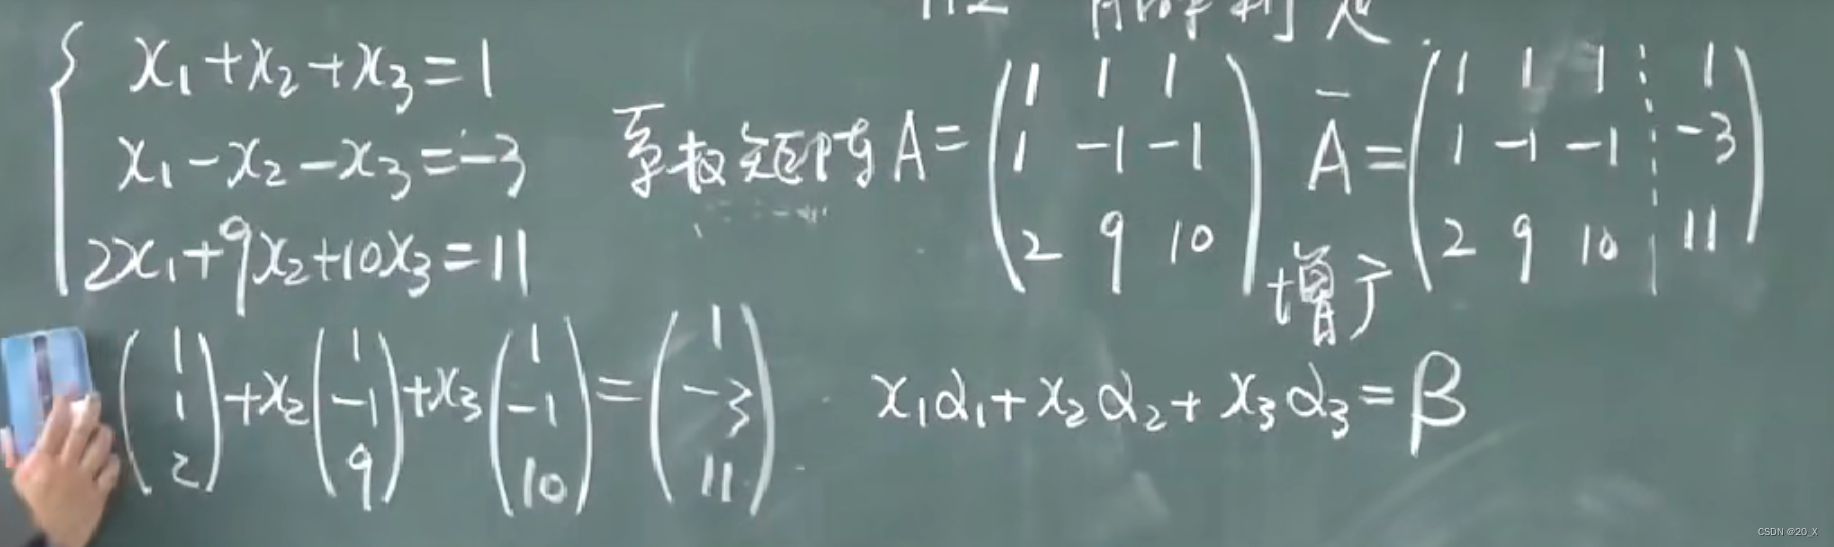 x₁+x₂+x₃=1
x₁-x₂-x₃=-3
2x₁+9x₂+10x₃=11
系数矩阵A=(1 1 1
1 -1 -1
2 9 10)
Ā=(1 1 1 ⋮ 1
1 -1 -1 ⋮ -3
2 9 10 ⋮ 11)
增广
(1 1 2)+x₂(1 -1 9)+x₃(1 -1 10)=(1 -3 11)
x₁α₁+x₂α₂+x₃α₃=β
CSDN @20_X